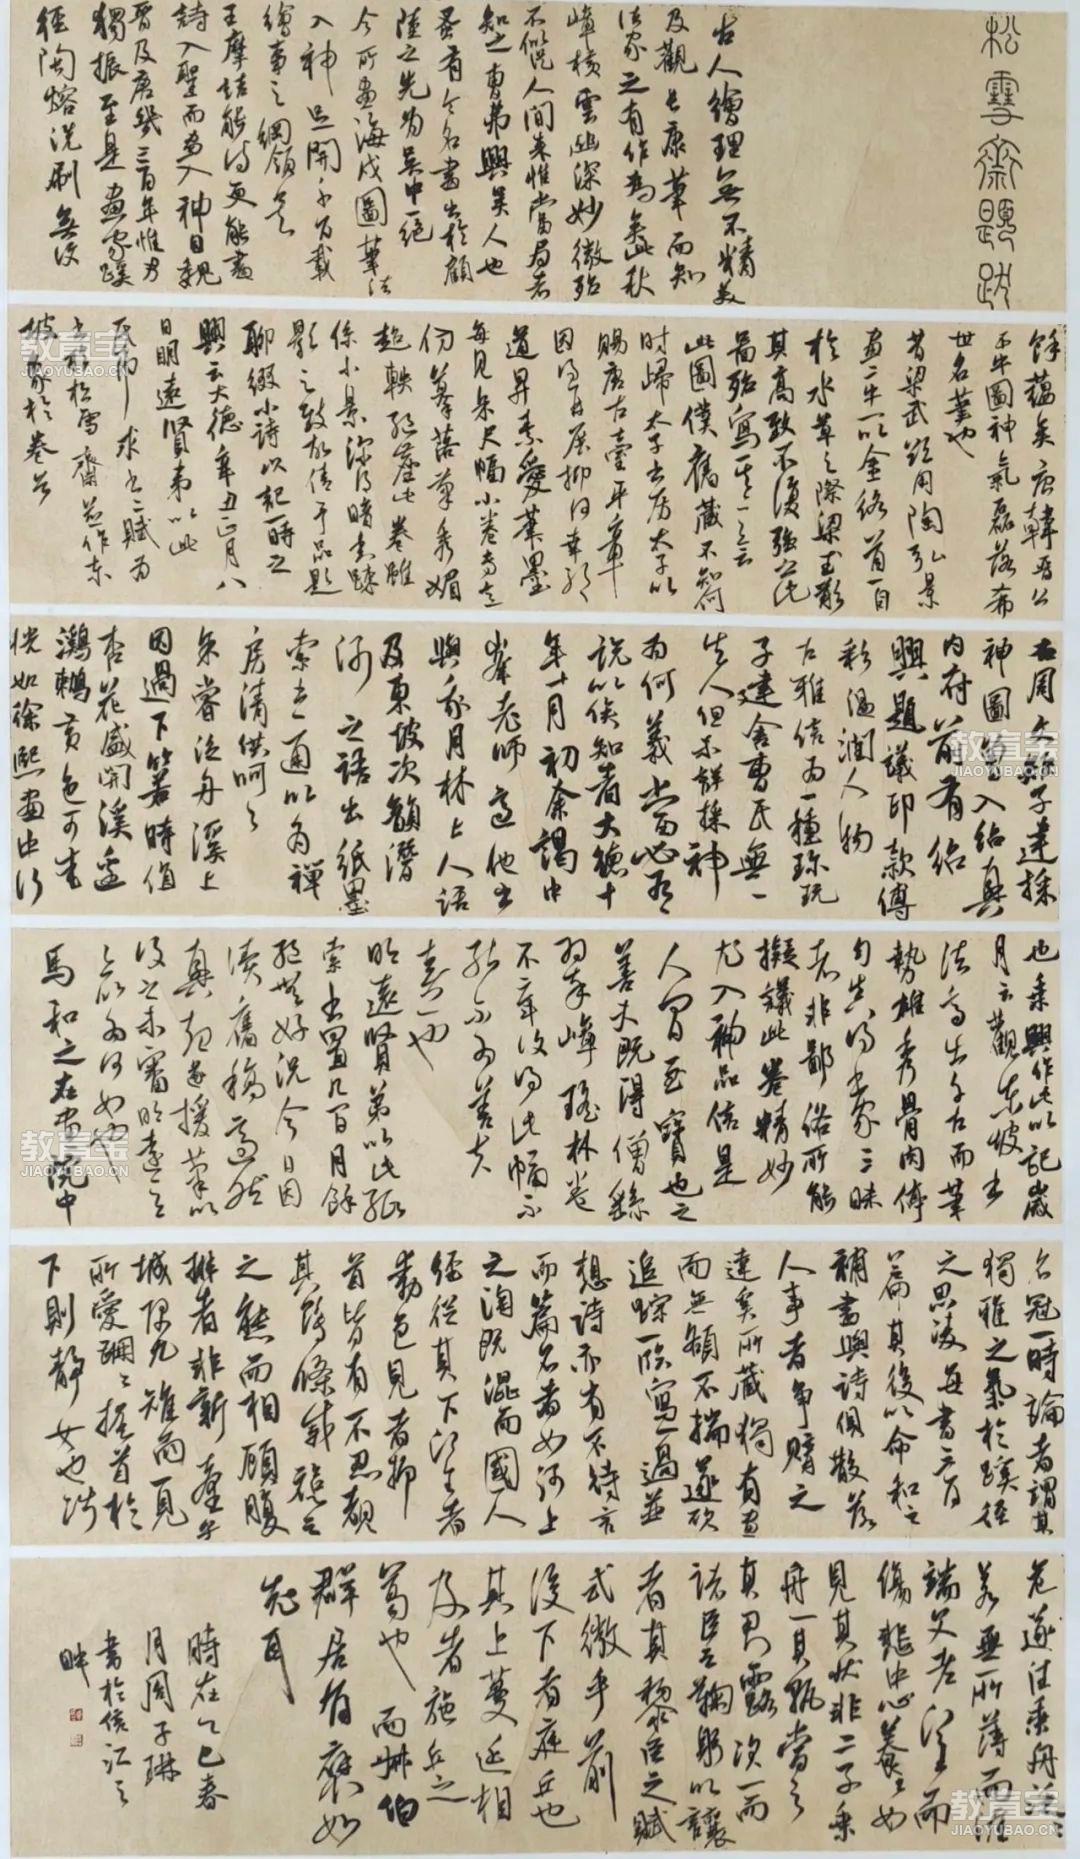 松雪齋題跋
古人繪理無不精妙
及觀長康筆而知
法家之有作為
嶂樹雲幽深妙微殆
不似從人間來惟當局者
知之曹弗興吳人也
蚤有令名畫出於顧
陸之先為吳中一絕
今所畫海戍圖筆法
入神且開千百載
繪事之綱領矣
王摩詰能詩更能畫
詩入聖而畫入神自魏
晉及唐幾三百年惟君
獨振至是畫家蹊
徑陶熔洗刷無復
餘蘊矣唐韓晉公
五牛圖神氣磊落希
世名筆也
昔梁武欲用陶弘景
畫二牛一以金絡首一自
放於水草之際梁武歎
其高致不復強
此圖僕舊藏不知何
時歸太子太傅太子以
賜唐古臺平章
因得拜展抑何幸耶
道昇素愛筆墨
每見余尺幅小卷專意
仿摹落筆秀媚
超軼絕塵此卷雖
係小景深得暗香疏
影之致故倩予品題
聊綴小詩以記一時之
興云大德辛丑正月八
日明遠賢弟以此
紙命求書二賦為
書於松雪齋並作東
坡像於卷首
右周文矩子建採
神圖曾入紹興
內府前有紹
興題識印款傅
彩溫潤人物
古雅信為一種珍玩
子建舍曹氏無一
先人但不解採神
為何義尚必有
說以俟知者大德十
年十月初余謁中
峯老師適他出
與吾月林上人語
及東坡次韻潛
師之語出紙墨
索書一通以為禪
房清供呵呵
余嘗泛舟溪上
因過下箬時值
杏花盛開溪岸
鸂鶒黃色可愛
恍如徐熙畫中行
也乘興作此以記歲
月云觀東坡書
法高出千古而筆
勢雄秀骨肉停
勻真得書家三昧
者非鄙俗所能
擬議此卷精妙
尤入神品信是
人間至寶也
善夫既得僧繇
翠嶂瑤林卷
不年復得此幅不
能不為善夫
喜也
明遠賢弟以此紙
索書置几間月餘
絕無好況今日因
讀舊稿適然
興起遂援筆以
復之未審明遠之
意以為何如也
馬和之在畫院中
名冠一時論者謂其
獨雅之氣於蹊徑
之思陵每書三百
篇其後以命和之
補畫與詩俱散落
人事者爭購之
達矣所藏獨有畫
而無額不揣遂欲
追踪一臨寫一過並
想詩亦有不待言
而篇名者如河上
之淘既混而國人
經從其下江上者
動色見者抑
首皆有不忍覩
其
之態而相顧腹
排者非新臺乎
城隅
所愛
下則靜女也
危遂往乘舟
若無所薄而
端父老望而
傷悲中心養養如
見其狀非二子乘
舟一
其君露次一而
諸臣鞠躬以讓
者其黎臣之賦
式微乎前
後下者庭丘也
其上蔓延相
及者施丘之
葛也而叔伯
群居褎如
充耳
時在乙巳春
月周子琳
書於信江之
畔
教育宝
JIAOYUBAO.CN
教育宝
JIAOYUBAO.CN
教育宝
JIAOYUBAO.CN
教育宝
JIAOYUBAO.CN